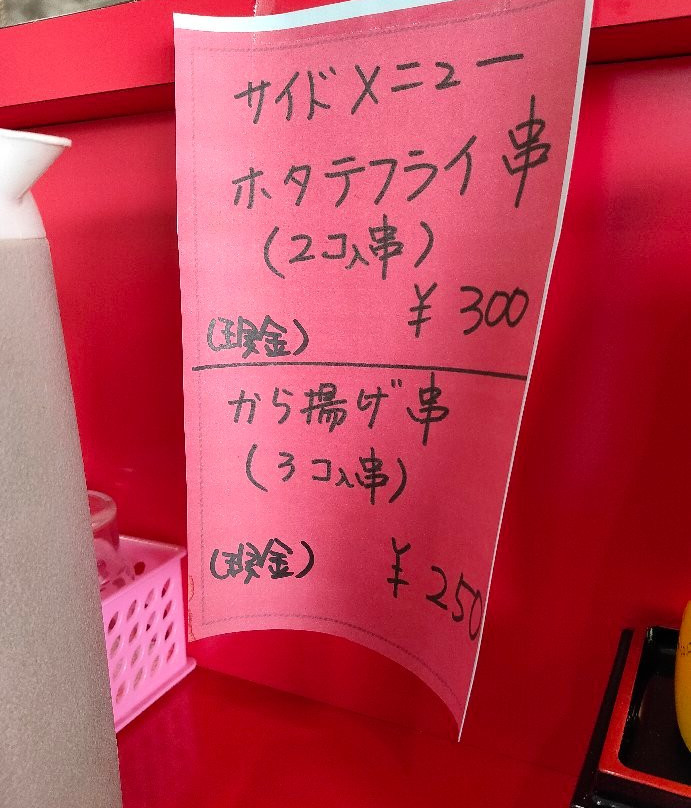 サイドメニュー
ホタテフライ串
(2コ入串)
(現金) ¥300
から揚げ串
(3コ入串)
(現金) ¥250